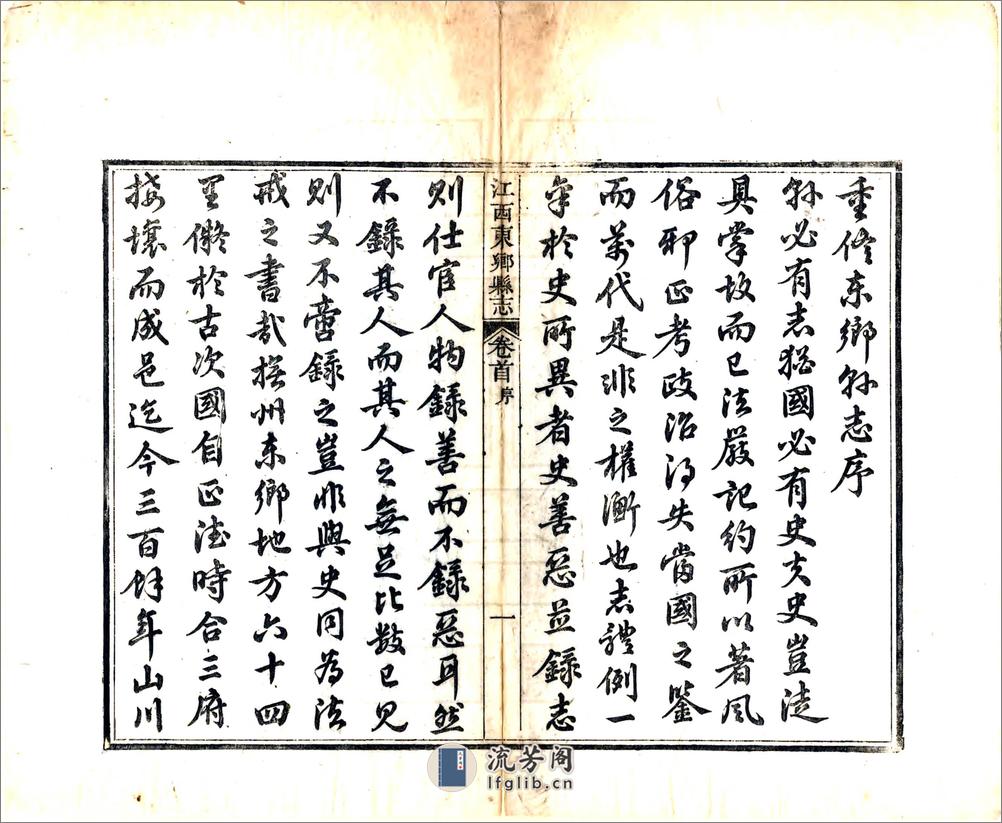 重修东鄉縣志序
縣必有志猶國必有史夫史豈徒
具掌故而已法嚴記約所以著风
俗邪正考政治得失當國之鉴
而萬代是非之權衡也志體例一
牟於史所異者史善惡並錄志
江西東鄉縣志 卷首 序 一
则仕宦人物録善而不録惡耳然
不録其人而其人之無足比数已見
则又不啻録之豈非與史同為法
戒之書哉撫州东鄉地方六十四
里儗於古次國自正德時合三府
接壤而成邑迄今三百餘年山川
流芳阁
lfglib.cn